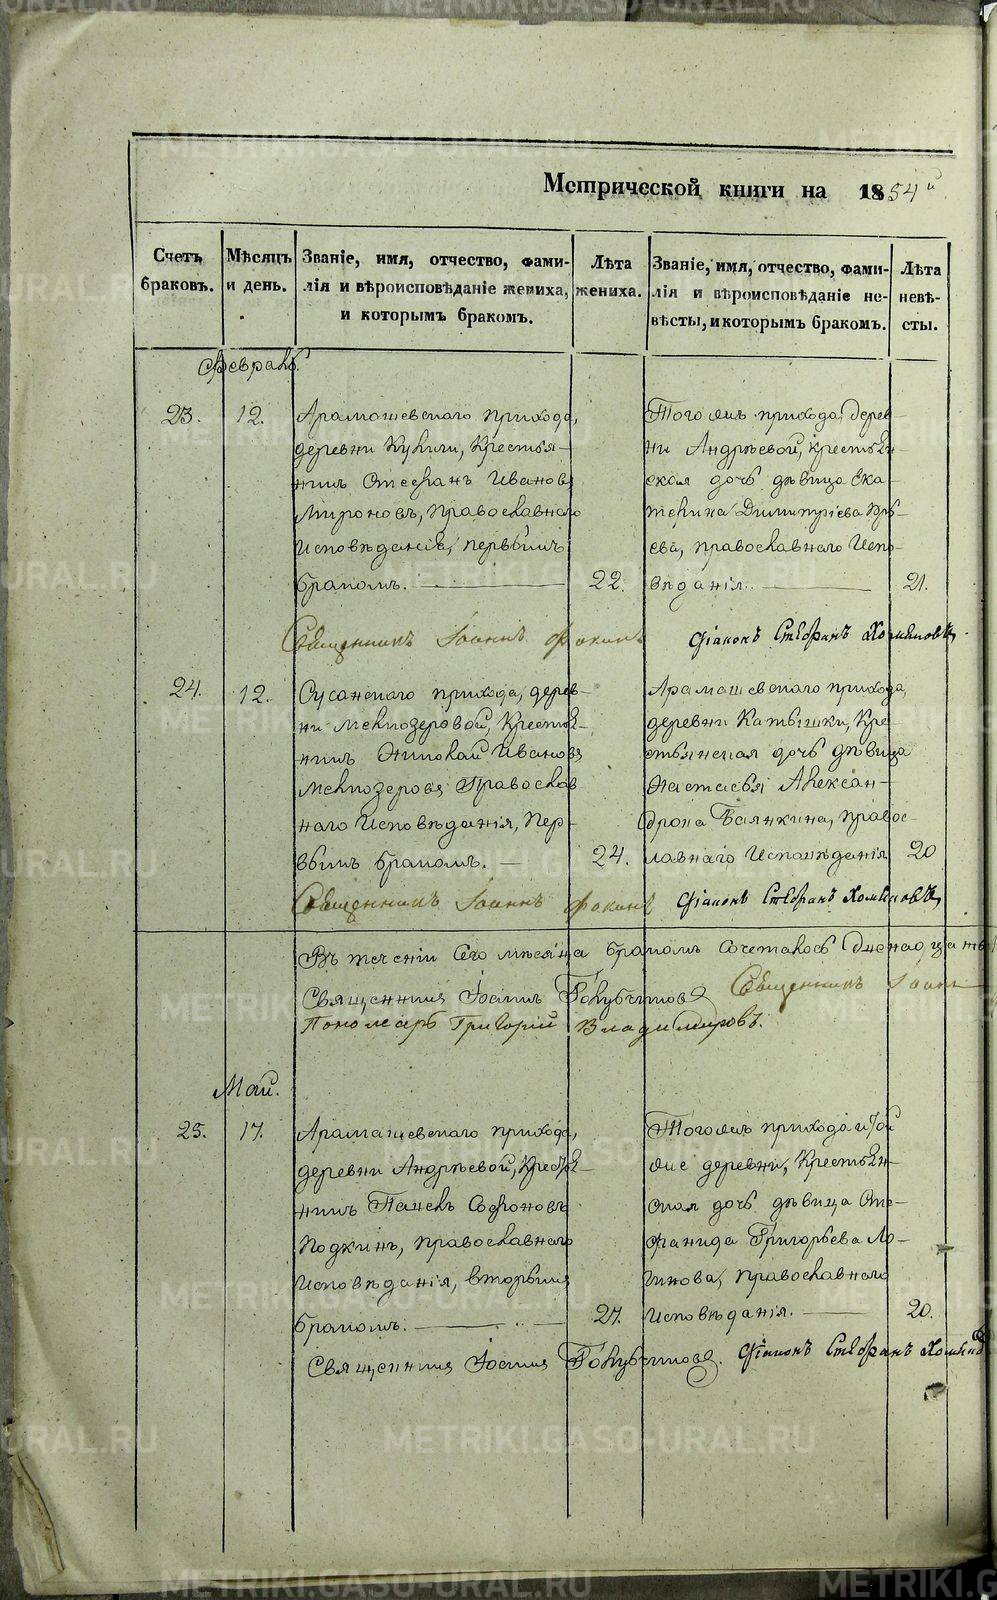 Метрической книги на 1854й
Счетъ браковъ.
Мѣсяцъ и день.
Званіе, имя, отчество, фами-
лія и вѣроисповѣданіе жениха,
и которымъ бракомъ.
Лѣта жениха.
Званіе, имя, отчество, фами-
лія и вѣроисповѣданіе не-
вѣсты, и которымъ бракомъ.
Лѣта невѣ-
сты.
Февраль.
23. 12.
Арамашевскаго прихода,
деревни Кулиги, Крестья-
нинъ Стефанъ Ивановъ
Мироновъ, Православнаго
Исповѣданія, первымъ
бракомъ. 22.
Тогожъ прихода, дерев-
ни Андрѣевой, крестьян-
ская дочь дѣвица Ека-
терина Димитріева
православнаго Испо-
вѣданія. 21.
Священникъ Іоаннъ Фокинъ
Діаконъ Стефанъ Хомяковъ.
24. 12.
Сусанскаго прихода, дерев-
ни Мелкозеровой, Крестья-
нинъ Николай Ивановъ
Мелкозеровъ Православ
наго Исповѣданія, Пер-
вымъ бракомъ. 24.
Арамашевскаго прихода,
деревни Катышки, Кре-
стьянская дочь дѣвица
Настасья Алексан-
дрова Балякина, Правос-
лавнаго Исповѣданія 20
Священникъ Іоаннъ Фокинъ
Діаконъ Стефанъ Хомяковъ,
Въ теченіи Сего мѣсяца бракомъ Сочеталось
Священникъ Іоаннъ
Священникъ Іоаннъ Голубчиковъ
Пономарь Григорій Владимировъ.
Май.
25. 17.
Арамашевскаго прихода,
деревни Андрѣевой, Крестья-
нинъ Павелъ Софроновъ
Подкинъ, Православнаго
Исповѣданія, вторымъ
бракомъ. 27.
Тогожъ прихода и той
же деревни, Крестьян-
ская дочь дѣвица Сте-
фанида Григорьева Ло-
гинова, Православнаго
Исповѣданія. 20.
Священникъ Іоаннъ Голубчиковъ.
Діаконъ Стефанъ Хомяковъ
METRIKI.GASO-URAL.RU